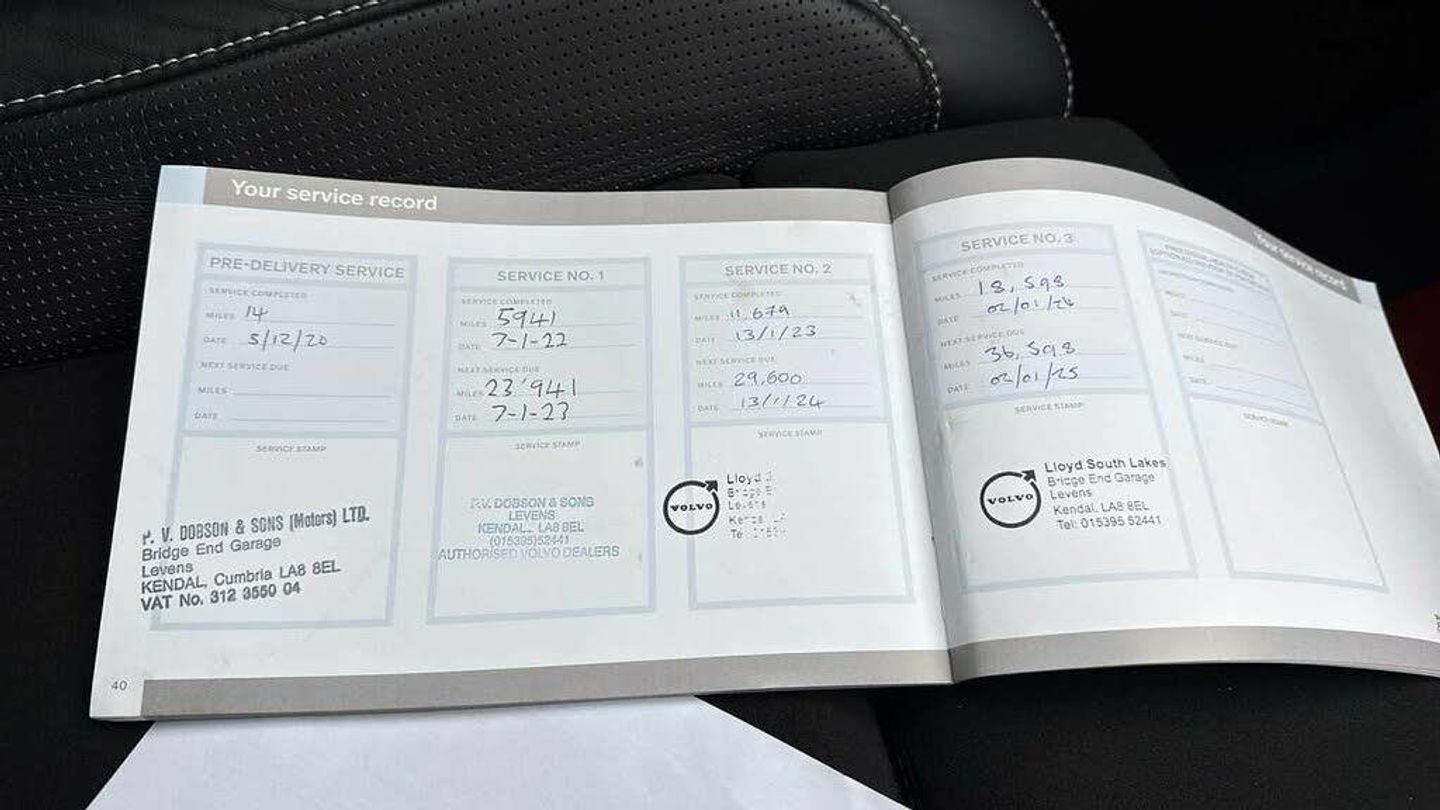 Your service record
PRE-DELIVERY SERVICE
SERVICE COMPLETED
MILES 14
DATE 5/12/20
NEXT SERVICE DUE
MILES
DATE
SERVICE STAMP
P. V. DOBSON & SONS (Motors) LTD.
Bridge End Garage
Levens
KENDAL, Cumbria LA8 8EL
VAT No. 312 3550 04
40
SERVICE NO. 1
SERVICE COMPLETED
MILES 5941
DATE 7-1-22
NEXT SERVICE DUE
MILES 23'941
DATE 7-1-23
SERVICE STAMP
P.V. DOBSON & SONS
LEVENS
KENDAL, LA8 8EL
(015395)52441
AUTHORISED VOLVO DEALERS
SERVICE NO. 2
SERVICE COMPLETED
MILES 11,679
DATE 13/1/23
NEXT SERVICE DUE
MILES 29,600
DATE 13/1/24
SERVICE STAMP
VOLVO
Lloyd
Your service record
SERVICE NO. 3
SERVICE COMPLETED
MILES 18,598
DATE 02/01/24
NEXT SERVICE DUE
MILES 36,598
DATE 02/01/25
SERVICE STAMP
VOLVO
Lloyd South Lakes
Bridge End Garage
Levens
Kendal, LA8 8EL
Tel: 015395 52441
MILES
DATE
NEXT SERVICE DUE
MILES
DATE
SERVICE STAMP